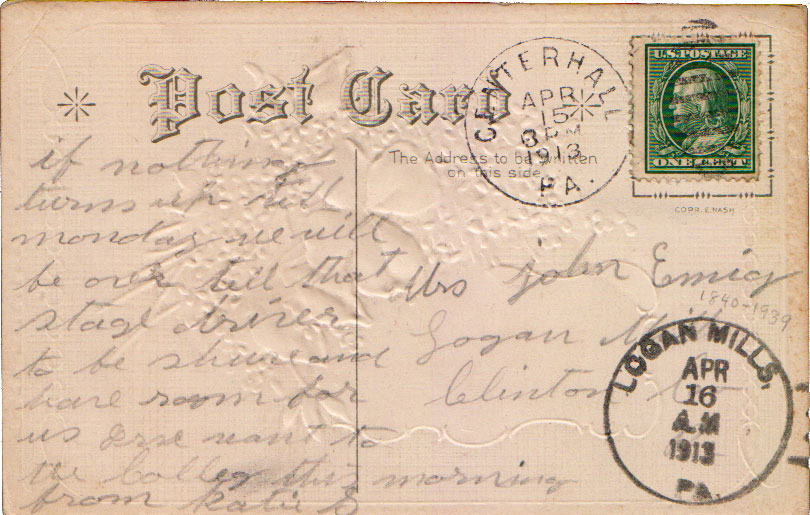 Post Card
CENTERHALL
APR
15
3 PM
1913
PA.
U.S. POSTAGE
ONE CENT
The Address to be written
on this side.
COPR. E. NASH
if nothing
turns up till
monday we will
be over tell that
stage driver
to be shure and
have room for
us
went to
the this morning
from Katie S
Mrs John Emig
1840-1939
Logan Mills
Clinton Co
LOGAN MILLS,
APR
16
A.M
1913
PA.